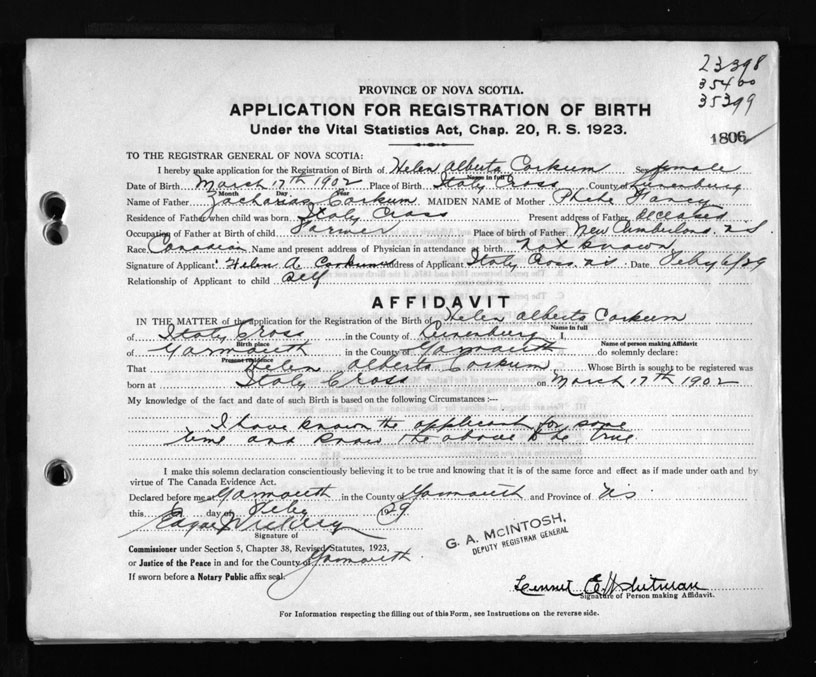 23398
35400
35399
PROVINCE OF NOVA SCOTIA.
APPLICATION FOR REGISTRATION OF BIRTH
Under the Vital Statistics Act, Chap. 20, R. S. 1923.
1806
TO THE REGISTRAR GENERAL OF NOVA SCOTIA:
I hereby make application for the Registration of Birth of Helen Alberta Corkum Sex female
Name in full
Date of Birth March 17th 1902 Place of Birth Italy Cross County of Lunenburg
Month Day Year
Name of Father Zacharias Corkum MAIDEN NAME of Mother Phebe
Residence of Father when child was born Italy Cross Present address of Father deceased
Occupation of Father at Birth of child Farmer Place of birth of Father New Cumberland. N.S.
Race Canadian Name and present address of Physician in attendance at birth not known
Signature of Applicant Helen A. Corkum Address of Applicant Italy Cross N.S. Date Feby 6/29
Relationship of Applicant to child Self
AFFIDAVIT
IN THE MATTER of the application for the Registration of the Birth of Helen Alberta Corkum
Name in full
of Italy Cross in the County of Lunenburg I,
Birth place Name of person making Affidavit
of Yarmouth in the County of Yarmouth do solemnly declare:
Present residence
That Helen Alberta Corkum Whose Birth is sought to be registered was
born at Italy Cross on March 17th 1902
My knowledge of the fact and date of such Birth is based on the following Circumstances :—
I have known the applicant for some
time and know the above to be true
I make this solemn declaration conscientiously believing it to be true and knowing that it is of the same force and effect as if made under oath and by
virtue of The Canada Evidence Act.
Declared before me at Yarmouth in the County of Yarmouth and Province of N.S.
this 6 day of Feby 1929
Signature of
G. A. McINTOSH,
DEPUTY REGISTRAR GENERAL
Commissioner under Section 5, Chapter 38, Revised Statutes, 1923,
or Justice of the Peace in and for the County of Yarmouth.
If sworn before a Notary Public affix seal.
Signature of Person making Affidavit.
For Information respecting the filling out of this Form, see Instructions on the reverse side.